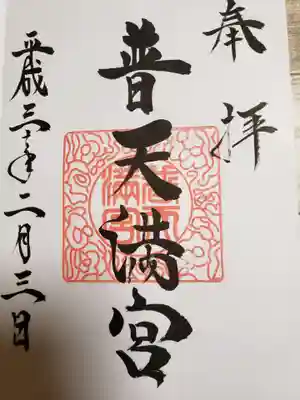 奉拝
普天満宮
平成三十年二月三日